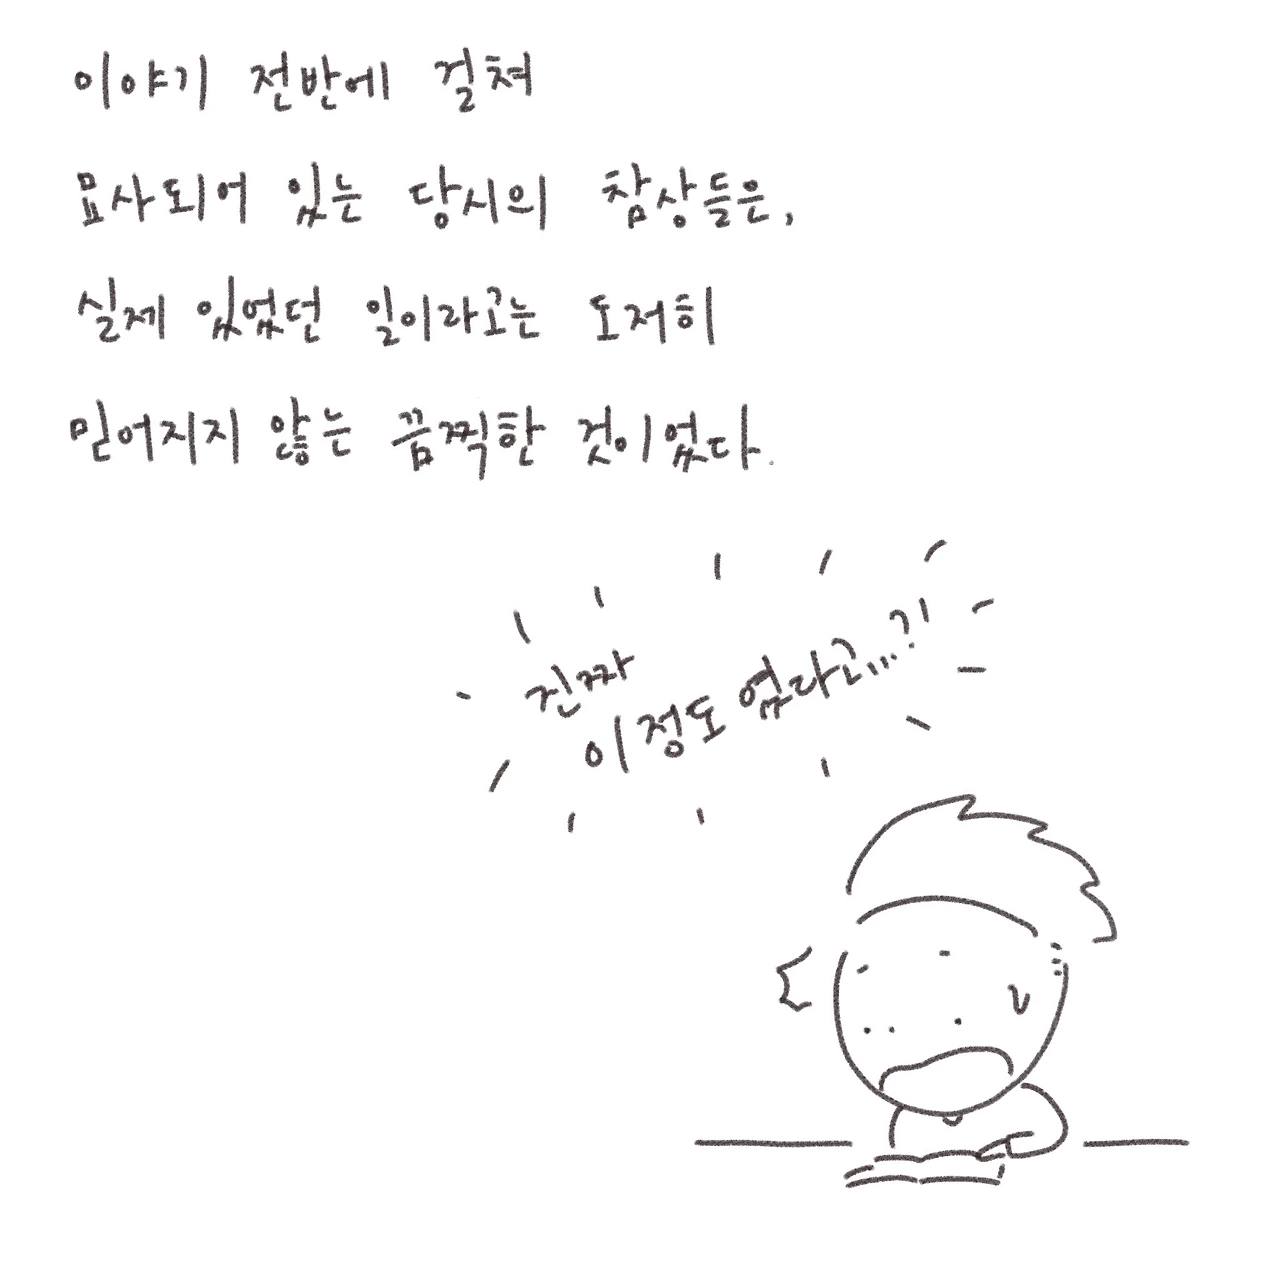 이야기 전반에 걸쳐
묘사되어 있는 당시의 참상들은,
실제 있었던 일이라고는 도저히
믿어지지 않는 끔찍한 것이었다.
진짜
이 정도 였다고...?!